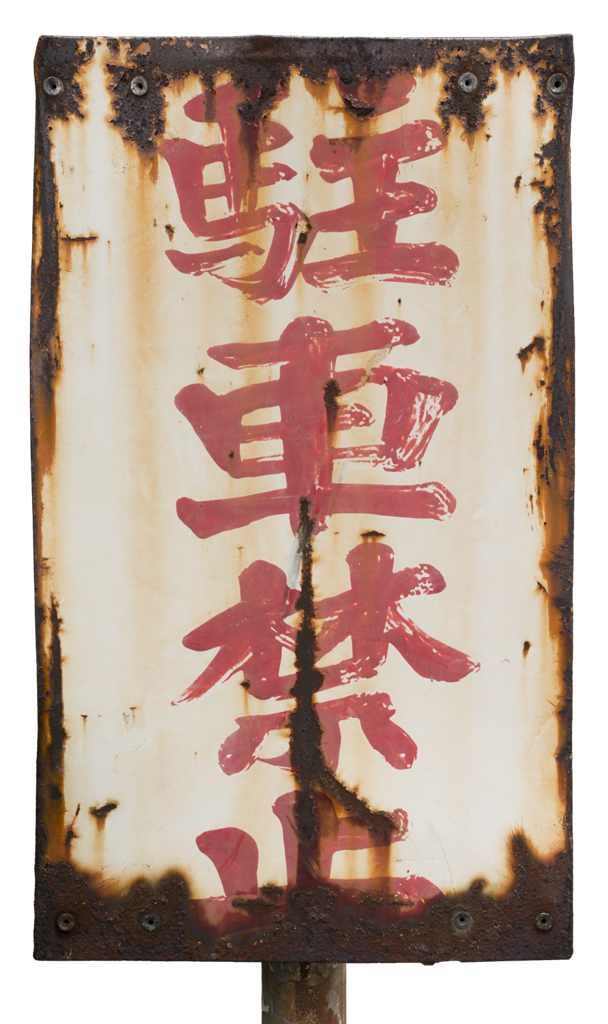 駐車禁止